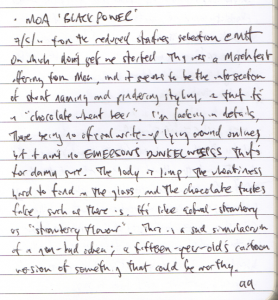 · MOA 'BLACK POWER'
7/5/11 from the reduced status selection @ MBT
On which, don't get me started. This was a Marchfest
offering from Moa, and it seems to be the intersection
of stunt naming and pandering styling, in that it's
a "chocolate wheat beer". I'm lacking in details,
there being no official write-up lying around online,
but it ain't no EMERSON'S DUNKELWEISS. That's
for damn sure. The body is limp. The wheatiness
hard to find in the glass, and the chocolate tastes
false, such as there is. It's like school-strawberry
as "strawberry flavour". This is a sad simulacrum
of a non-bad idea; a fifteen-year-old's cartoon
version of something that could be worthy.